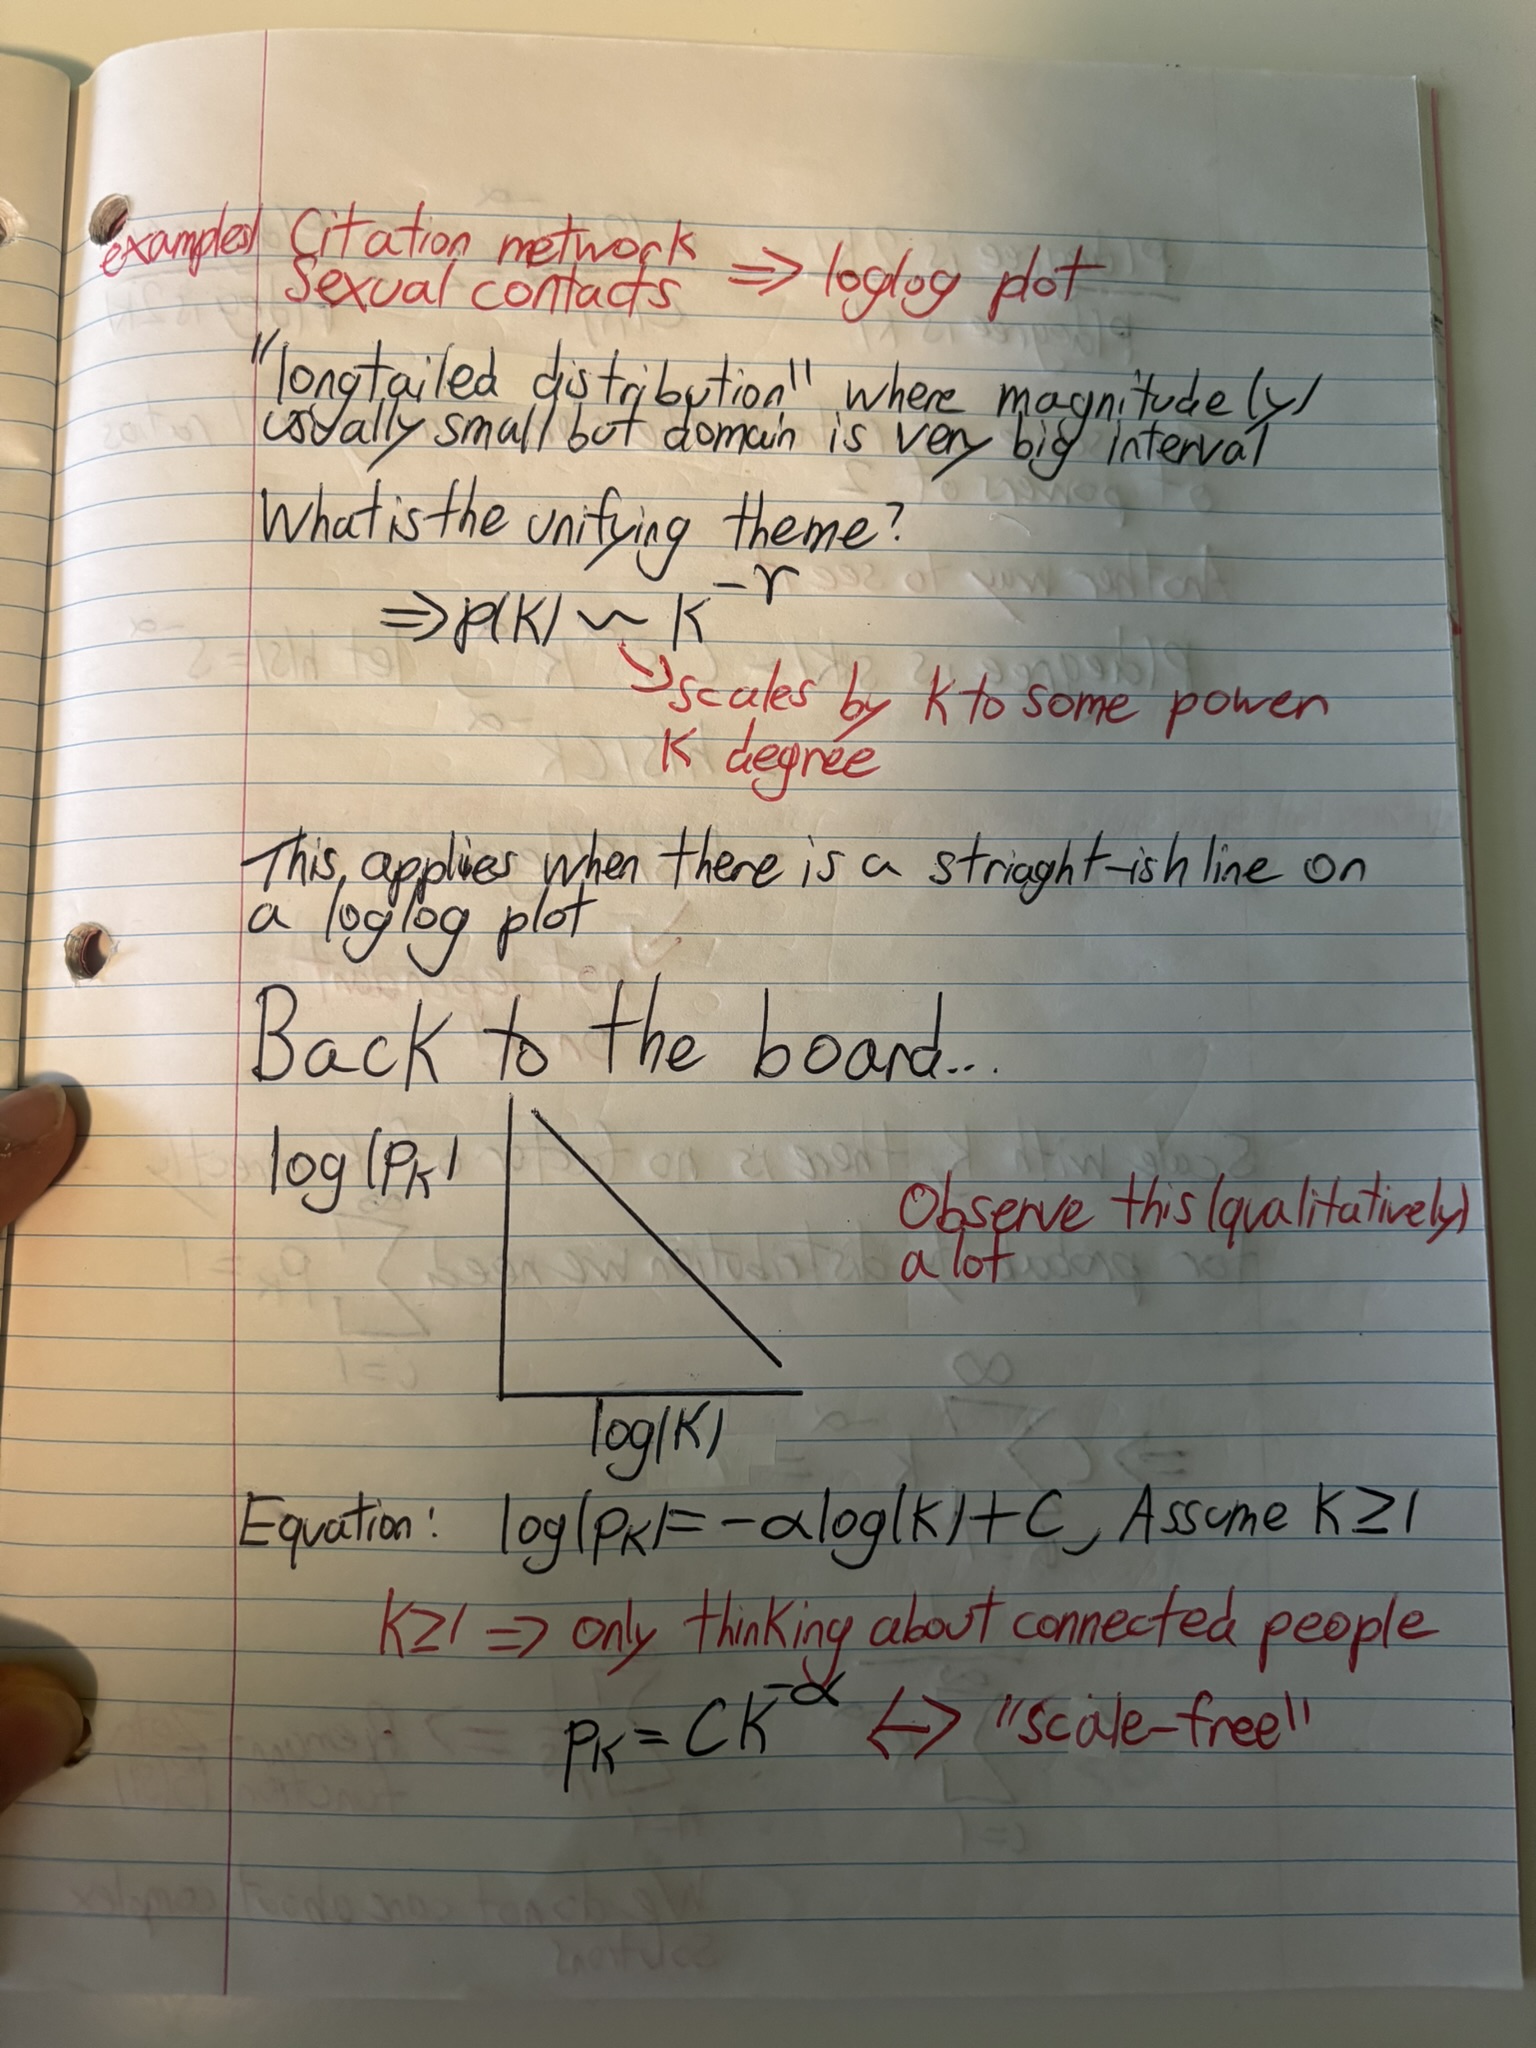 examples) Citation network
Sexual contacts => loglog plot
"longtailed distribution" where magnitude (y)
usually small but domain is very big interval
What is the unifying theme?
=> p(K) ~ K^-γ
scales by K to some power
K degree
This applies when there is a striaght-ish line on
a loglog plot
Back to the board...
log(pK)
Observe this (qualitatively)
a lot
log(K)
Equation: log(pK) = -αlog(K)+C, Assume K≥1
K≥1 => only thinking about connected people
pK = CK^-α <-> "scale-free"